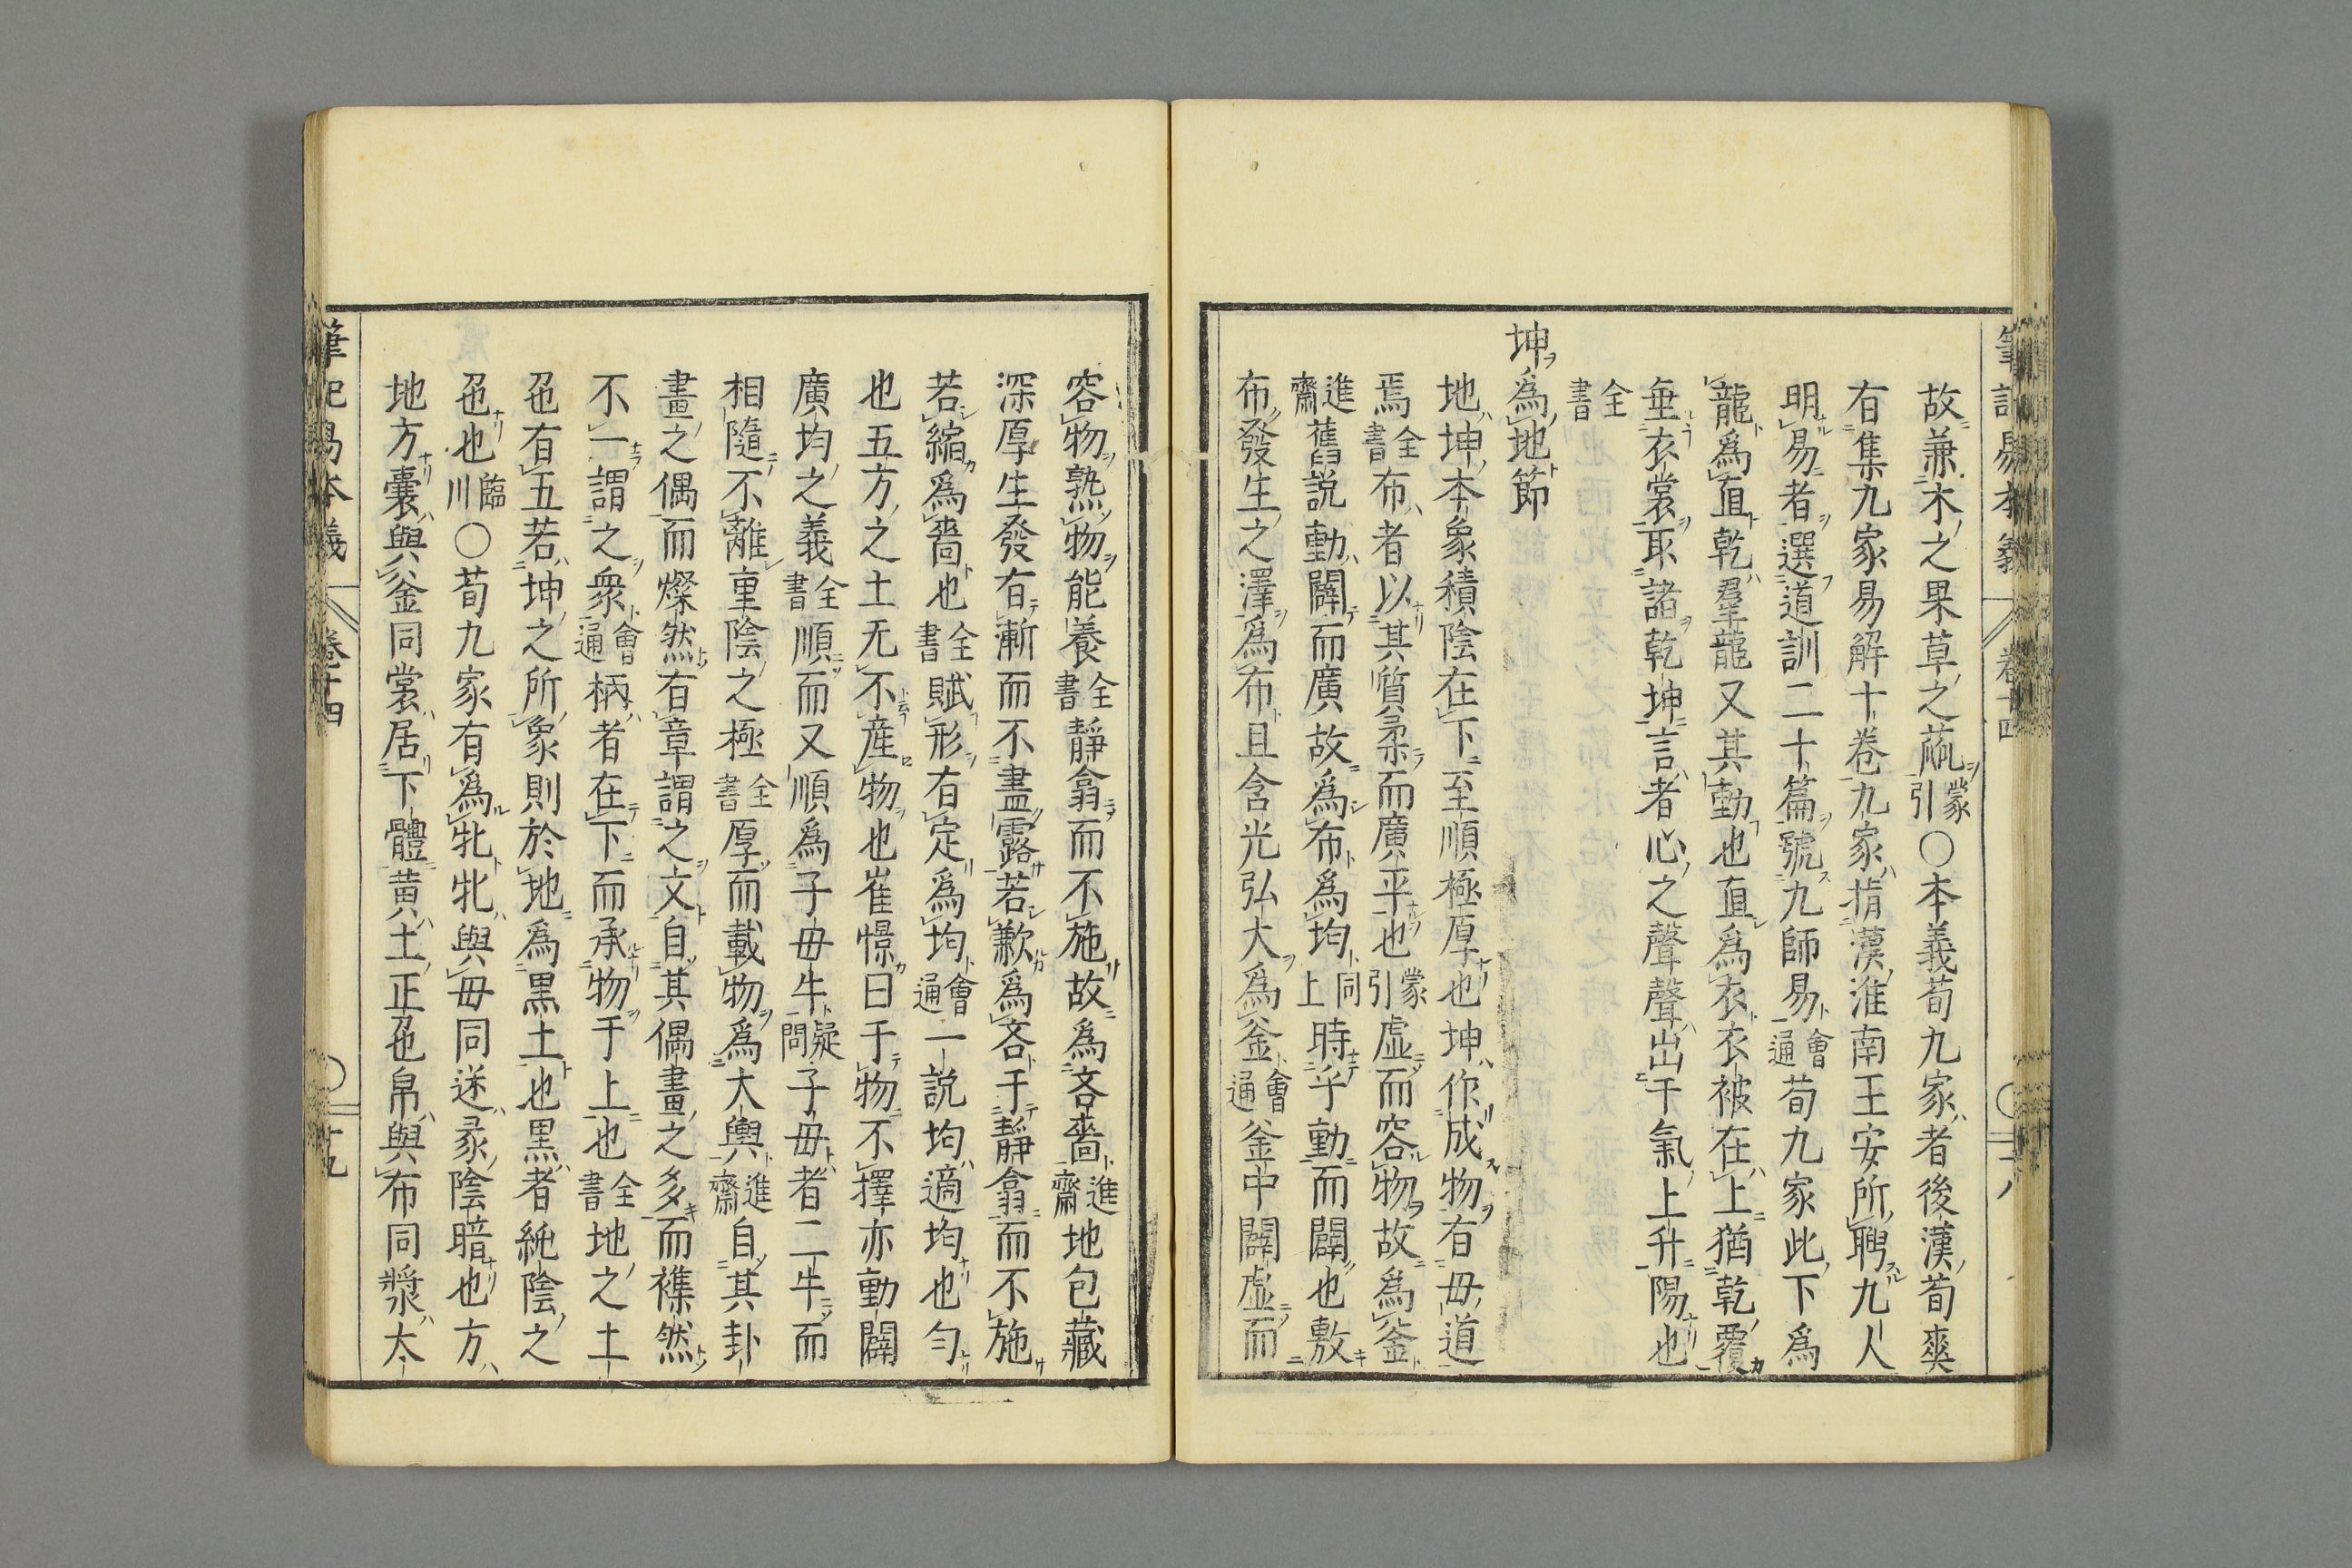 故兼木之果草之蓏蒙引〇本義荀九家者後漢荀爽
有集九家易解十卷九家指漢淮南王安所聘九人
明易者選道訓二十篇號九師易會通荀九家此下爲
龍爲直乾羣龍又其動也直爲衣衣被在上猶乾覆
垂衣裳取諸乾坤言者心之聲聲出于氣上升陽也
全書
坤爲地節
地坤本象積陰在下至順極厚也坤作成物有毋道
焉全書布者以其質柔而廣平也蒙引虛而容物故爲釜
進齋舊説動闢而廣故爲布爲均同上時乎動而闢也敷
布發生之澤爲布且含光弘大爲釜會通釜中闢虛而
容物熟物能養全書靜翕而不施故爲吝嗇進齋地包藏
深厚生發有漸而不盡露若歉爲吝于靜翕而不施
若縮爲嗇也全書賦形有定爲均會通一説均適均也勻
也五方之土无不産物也崔憬曰于物不擇亦動闢
廣均之義全書順而又順爲子毋牛疑問子毋者二牛而
相隨不離重陰之極全書厚而載物爲大輿進齋自其卦
畫之偶而燦然有章謂之文自其偶畫之多而襍然
不一謂之衆會通柄者在下而承物于上也全書地之土
色有五若坤之所象則於地爲黒土也黒者純陰之
色也臨川〇荀九家有爲牝牝與毋同迷彖陰暗也方
地方囊與釜同裳居下體黄土正色帛與布同漿太
筆記易本義 卷十四 〇 十九